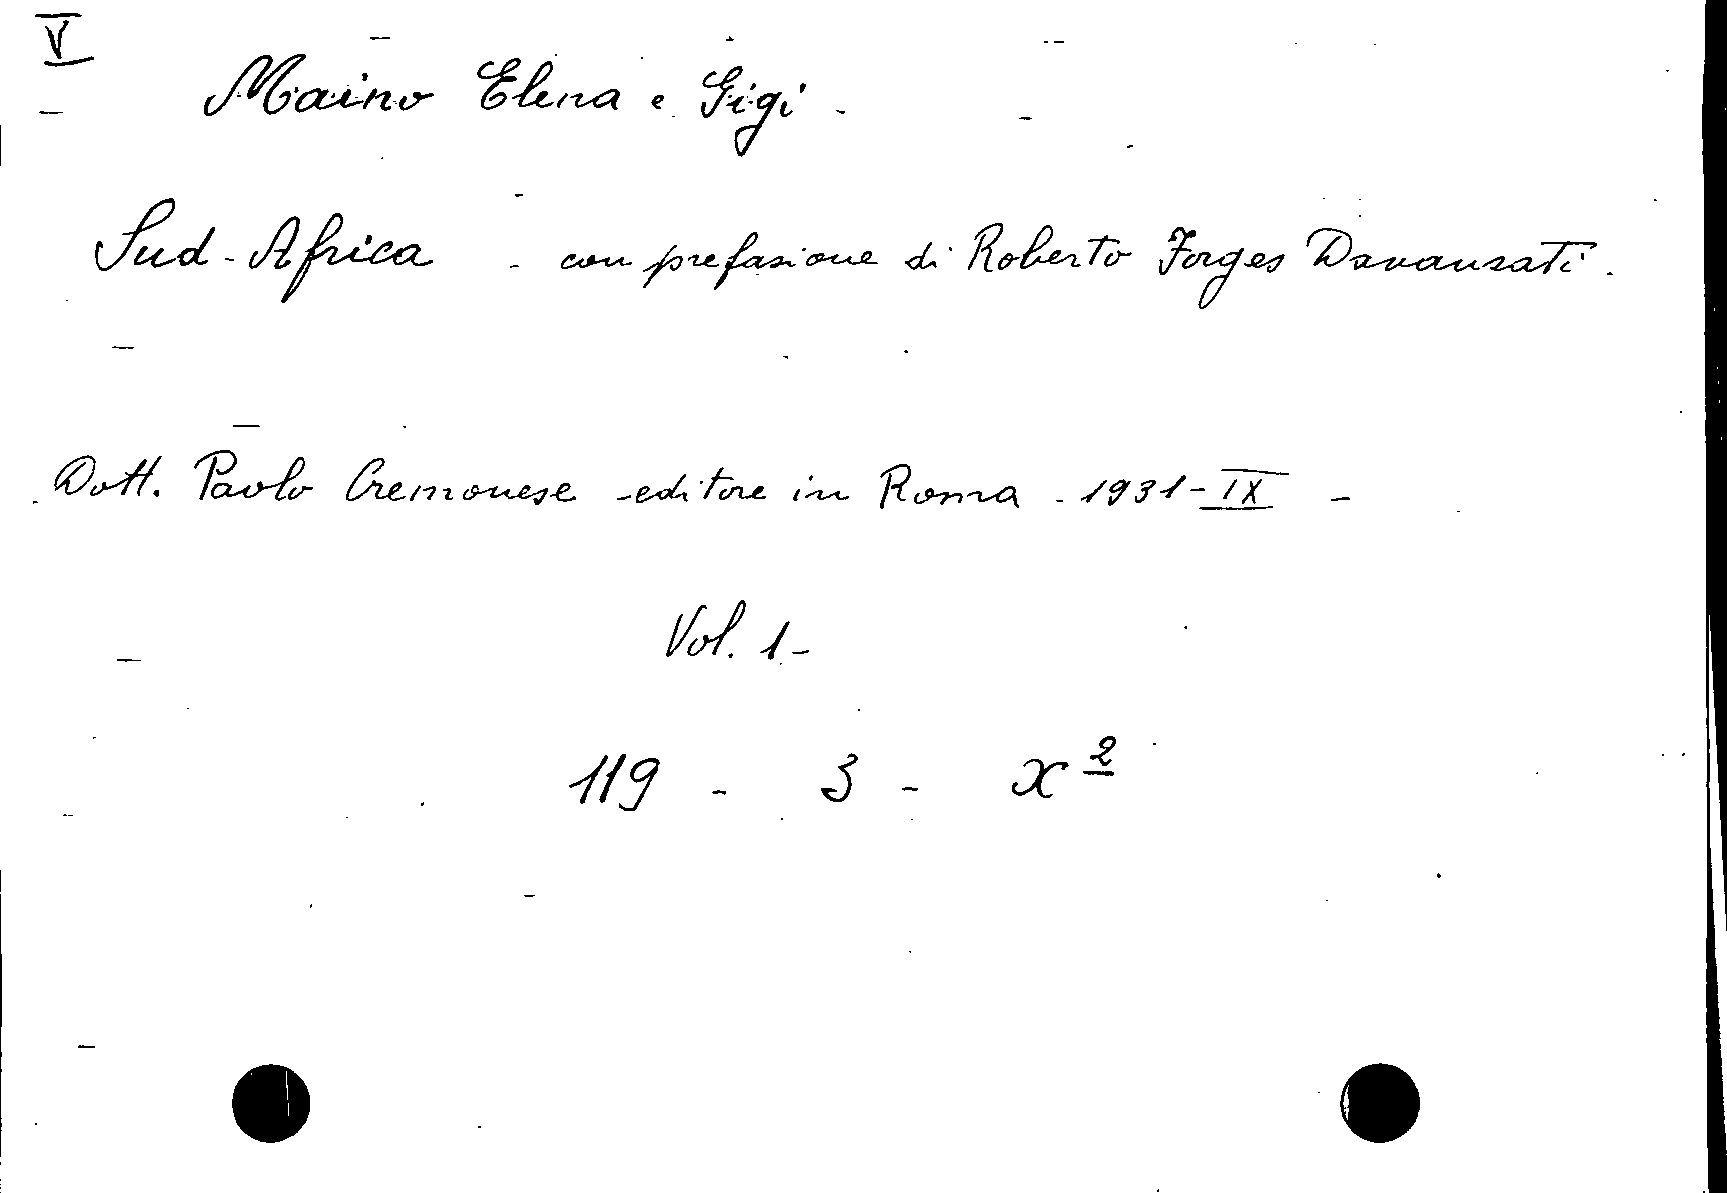 V
Maino Elena e Gigi -
Sud-Africa - con prefazione di Roberto Forges Davanzati.
Dott. Paolo Cremonese - editore in Roma - 1931-IX -
Vol. 1-
119 - 3 - X 2